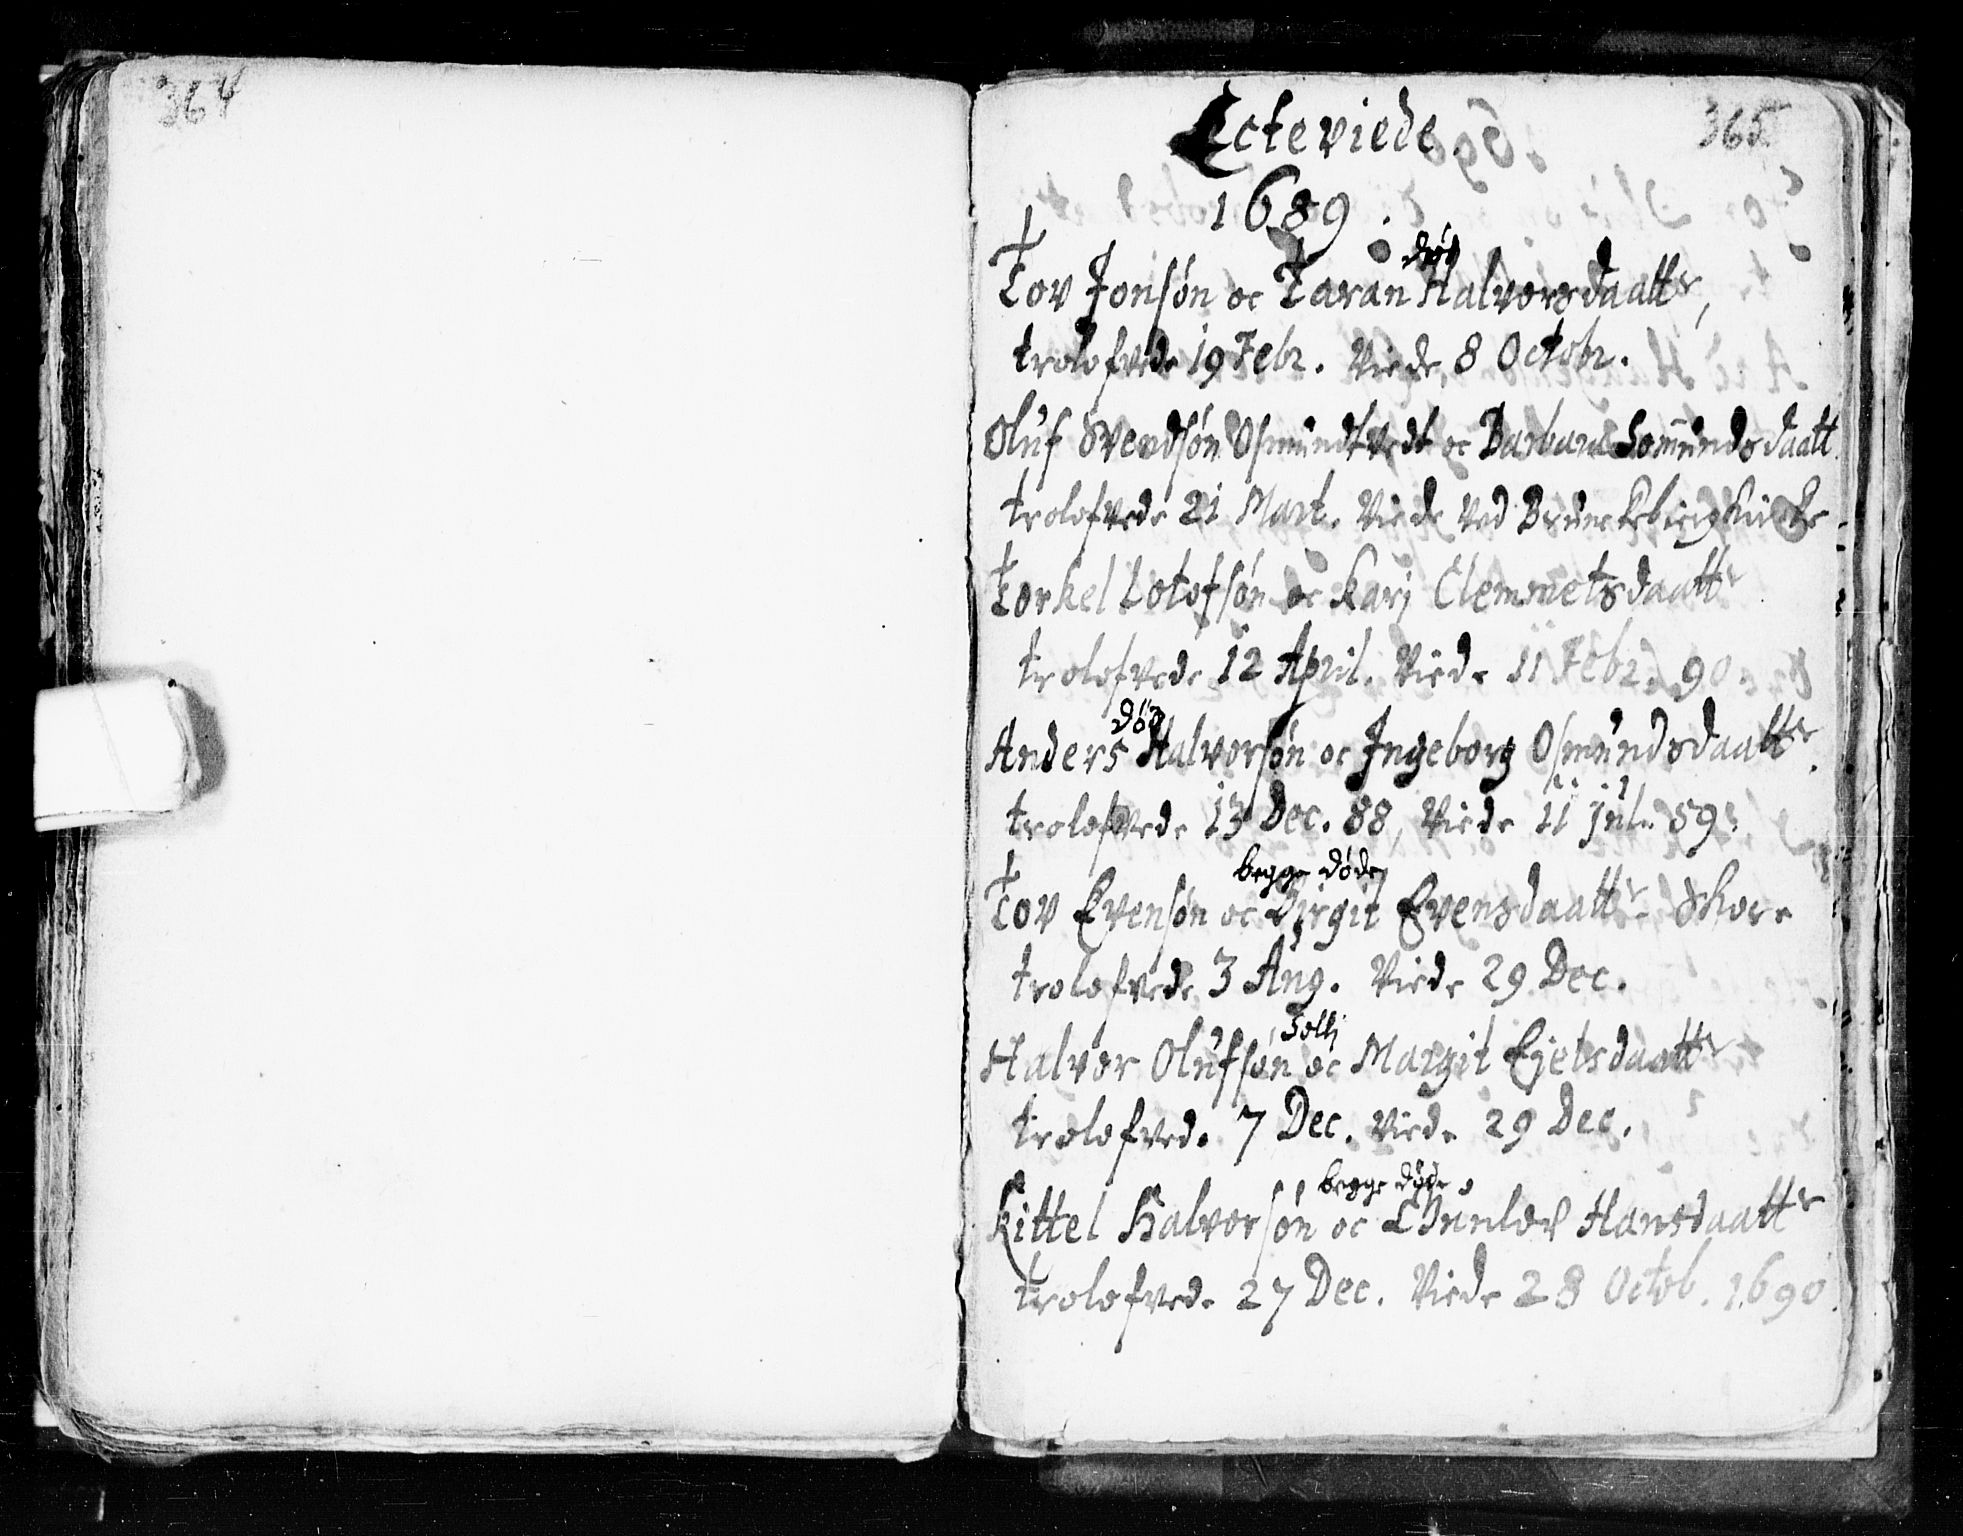 364
365
Ecteviede
1689.
død
Tov Jonsøn oc Taran Halvorsdaattr,
trolofvede 19 Febr. Viede 8 Octobr.
Oluf Svendsøn Osmundtvedt oc Barbara Somundsdaatt.
trolofvede 21 Mart. Viede ved Brunckebierg Kircke
Torkel Lotofsøn oc Karj Clemmetsdaattr
trolofvede 12 April. Viede 11 Febr. 90.
død
Anders Halvorsøn oc Ingeborg Osmundsdaattr.
trolofvede 13 Dec. 88, Viede 11 Jul. 89.
begge døde
Tov Evensøn oc Birgit Evensdaattr Skore
trolofvede 3 Aug. Viede 29 Dec.
Solli
Halvor Olufsøn oc Margit Ejelsdaattr
trolofvede 7 Dec. Viede 29 Dec.
begge døde
Kittel Halvorsøn oc Hansdaattr
trolofvede 27 Dec. Viede 28 Octob. 1690.